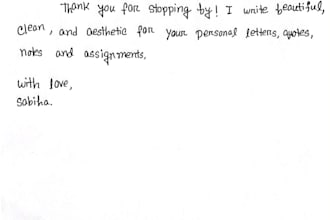 Thank you for stopping by! I write beautiful,
clean, and aesthetic for your personal letters, quotes,
notes and assignments.
with love,
Sabiha.